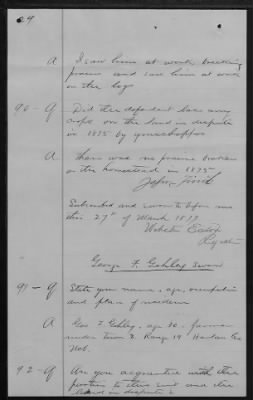 29
A I saw him at work breaking
prairie and saw him at work
on the
90 - Q Did the defendant loose any
crops on the land in dispute
in 1875 by grasshoppers
A There was no prairie broken
on the homestead in 1875
John
Subscribed and sworn to before me
this 27th of March 1879
Webster Eaton
Register
George F. Gehley Sworn
91 - Q State your name, age, occupation
and place of residence
A Geo F Gehley, age 30. farmer
reside town 3. Range 19 Harlan Co
Neb.
92 - Q Are you acquainted with the
parties to this suit and the
land in dispute